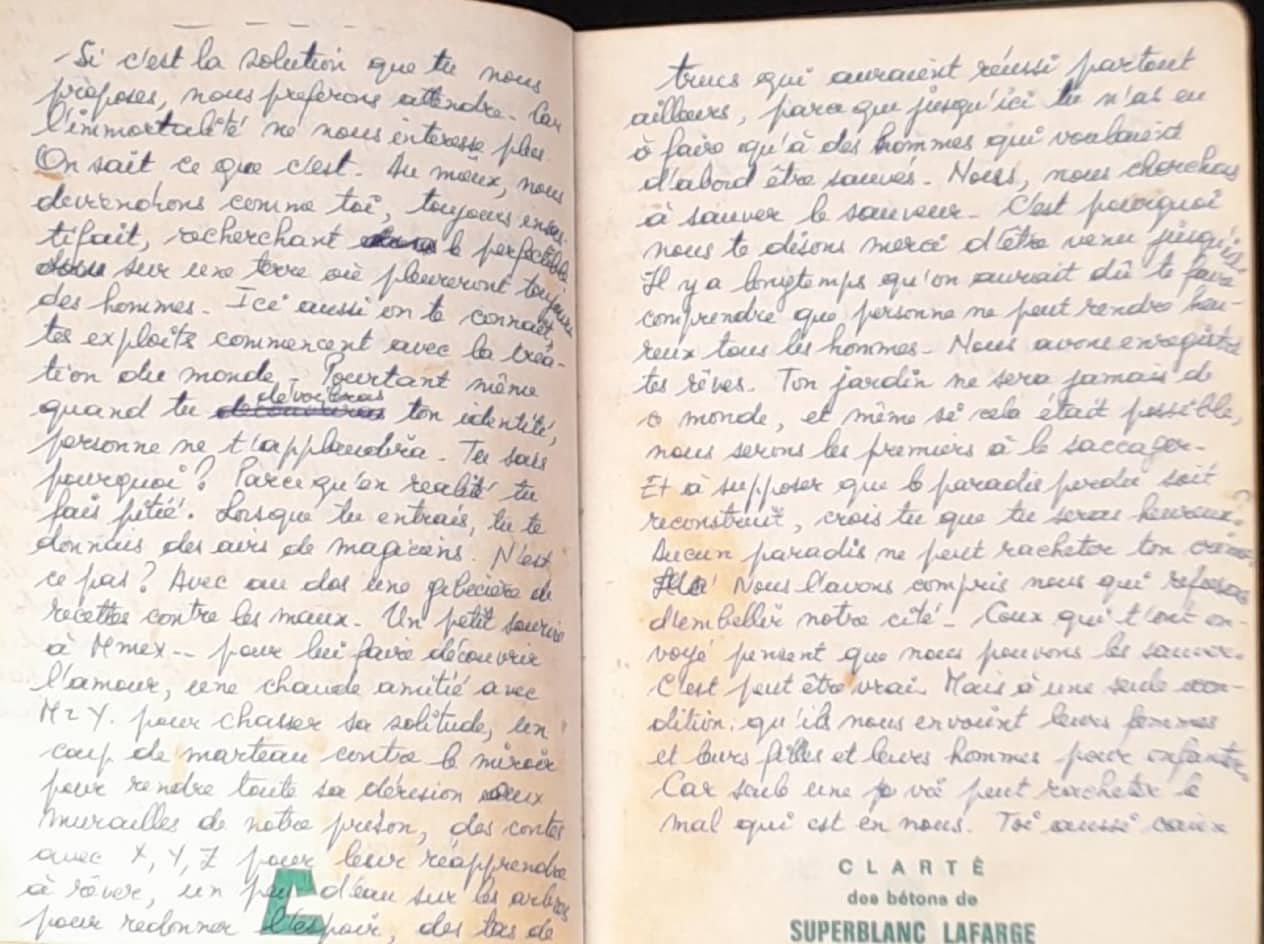 - Si c'est la solution que tu nous
proposes, nous preferons attendre. Car
l'immortalité ne nous interesse plus.
On sait ce que c'est. Au mieux, nous
deviendrons comme toi, toujours insa-
tisfait, recherchant le perfectible
sur une terre où pleureront toujours
des hommes. Ici aussi on te connait,
tes exploits commencent avec la créa-
tion du monde. Pourtant même
quand tu dévoileras ton identité,
personne ne t'applaudira. Tu sais
pourquoi ? Parce qu'en realité tu
fais pitié. Lorsque tu entrais, tu te
donnais des airs de magiciens. N'est
ce pas ? Avec au dos une gibeciere de
recettes contre les maux. Un petit sourire
à Mme X -- pour lui faire découvrir
l'amour, une chaude amitié avec
Mr Y. pour chasser sa solitude, un
coup de marteau contre le miroir
pour rendre toute sa dérision aux
murailles de notre prison, des contes
avec X, Y, Z pour leur réapprendre
à rêver, un peu d'eau sur les arbres
pour redonner l'espoir, des tas de
trucs qui auraient réussi partout
ailleurs, parce que jusqu'ici tu n'as eu
à faire qu'à des hommes qui voulaient
d'abord être sauvés. Nous, nous cherchons
à sauver le sauveur. C'est pourquoi
nous te disons merci d'être venu jusqu'ici.
Il y a longtemps qu'on aurait dû te faire
comprendre que personne ne peut rendre heu-
reux tous les hommes. Nous avons enregistré
tes rêves. Ton jardin ne sera jamais de
ce monde, et même si cela était possible,
nous serons les premiers à le saccager.
Et à supposer que le paradis perdu soit
reconstruit, crois tu que tu seras heureux ?
Aucun paradis ne peut racheter ton crime.
Nous l'avons compris nous qui refusons
d'embellir notre cité. Ceux qui t'ont en-
voyé pensent que nous pouvons les sauver.
C'est peut être vrai. Mais à une seule con-
dition: qu'ils nous envoient leurs femmes
et leurs filles et leurs hommes pour enfanter.
Car seule une vie peut racheter le
mal qui est en nous. Toi aussi
CLARTÉ
des bétons de
SUPERBLANC LAFARGE